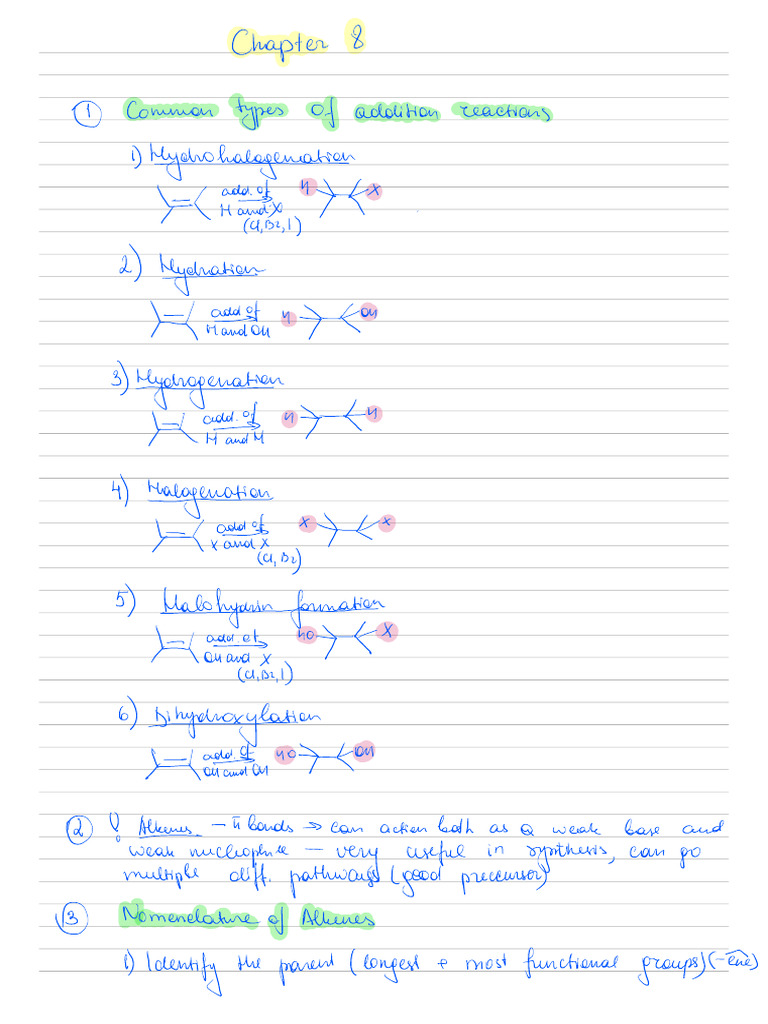 Chapter 8
① Common types of addition reactions
1) Hydrohalogenation
add. of H and X (Cl, Br, I) H X
2) Hydration
add of H and OH H OH
3) Hydrogenation
add. of H and H H H
4) Halogenation
add of X and X (Cl, Br) X X
5) Halohydrin formation
add. of OH and X (Cl, Br, I) HO X
6) Dihydroxylation
add. of OH and OH HO OH
② ! Alkenes - π bonds → can action both as a weak base and
weak nucleophile - very useful in synthesis, can go
multiple diff. pathways (good precursor)
③ Nomenclature of Alkenes
1) Identify the parent (longest + most functional groups) (-ene)